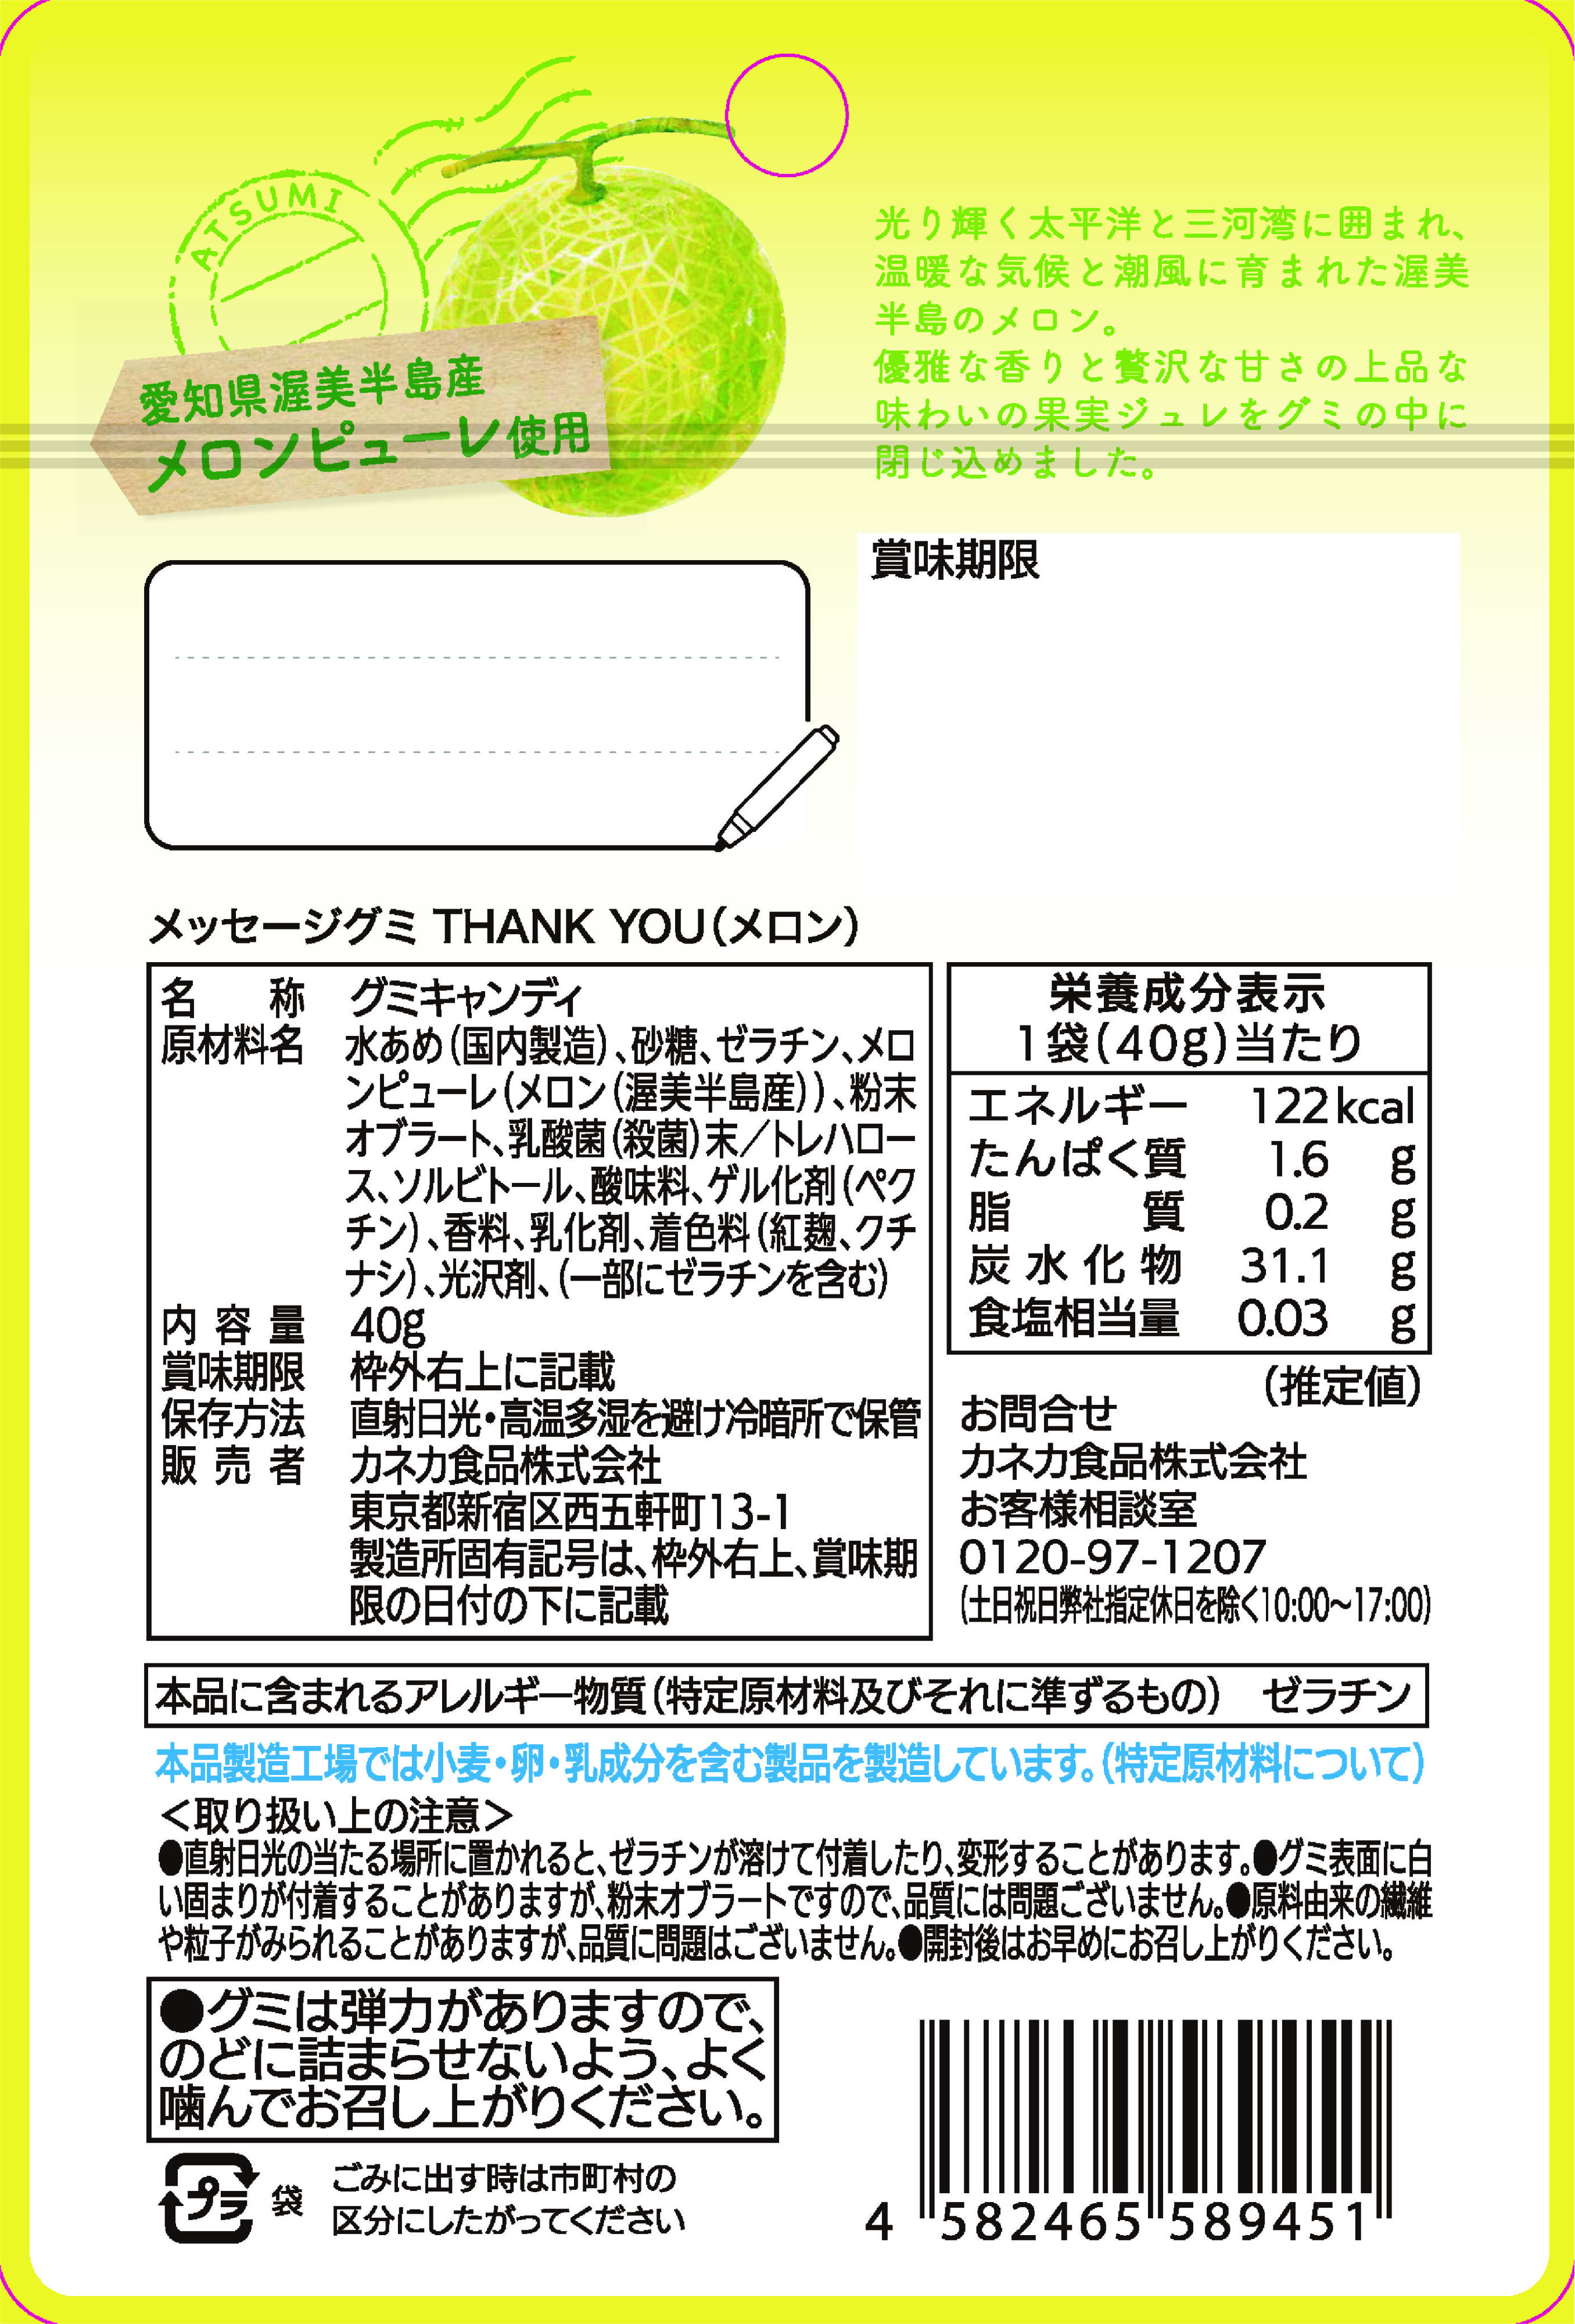 ATSUMI
愛知県渥美半島産
メロンピューレ使用
光り輝く太平洋と三河湾に囲まれ、
温暖な気候と潮風に育まれた渥美
半島のメロン。
優雅な香りと贅沢な甘さの上品な
味わいの果実ジュレをグミの中に
閉じ込めました。
賞味期限
メッセージグミ THANK YOU(メロン)
名 称 グミキャンディ
原材料名 水あめ(国内製造)、砂糖、ゼラチン、メロ
ンピューレ(メロン(渥美半島産))、粉末
オブラート、乳酸菌(殺菌)末/トレハロー
ス、ソルビトール、酸味料、ゲル化剤(ペク
チン)、香料、乳化剤、着色料(紅麹、クチ
ナシ)、光沢剤、(一部にゼラチンを含む)
内容量 40g
賞味期限 枠外右上に記載
保存方法 直射日光・高温多湿を避け冷暗所で保管
販売者 カネカ食品株式会社
東京都新宿区西五軒町13-1
製造所固有記号は、枠外右上、賞味期
限の日付の下に記載
栄養成分表示
1袋(40g)当たり
エネルギー 122kcal
たんぱく質 1.6 g
脂質 0.2 g
炭水化物 31.1 g
食塩相当量 0.03 g
(推定値)
お問合せ
カネカ食品株式会社
お客様相談室
0120-97-1207
(土日祝日弊社指定休日を除く10:00〜17:00)
本品に含まれるアレルギー物質(特定原材料及びそれに準ずるもの) ゼラチン
本品製造工場では小麦・卵・乳成分を含む製品を製造しています。(特定原材料について)
<取り扱い上の注意>
●直射日光の当たる場所に置かれると、ゼラチンが溶けて付着したり、変形することがあります。●グミ表面に白
い固まりが付着することがありますが、粉末オブラートですので、品質には問題ございません。●原料由来の繊維
や粒子がみられることがありますが、品質に問題はございません。●開封後はお早めにお召し上がりください。
●グミは弾力がありますので、
のどに詰まらせないよう、よく
噛んでお召し上がりください。
プラ 袋
ごみに出す時は市町村の
区分にしたがってください
4 582465 589451